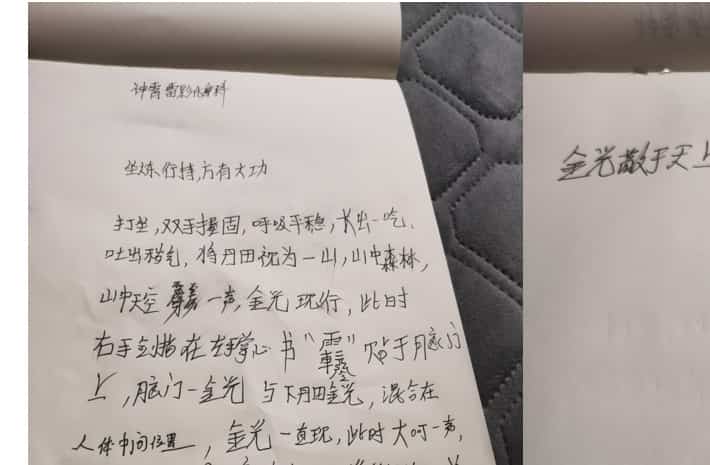 神霄雷影化身科
坐炼行持,方有大功
打坐,双手握固,呼吸平稳,大出一吃、
吐出秽气,将丹田视为一山,山中森林,
山中天空 一声,金光现行,此时
右手剑指在左手掌心书“ ”贴于脑门
上,脑门一金光与下丹田金光,混合在
人体中间位置,金光一直现,此时大呵一声,
金光散于天上